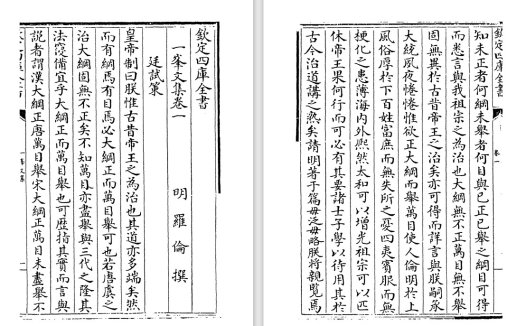 欽定四庫全書
一峯文集卷一　　　明　羅倫　撰
廷試策
皇帝制曰朕惟古昔帝王之為治也其道亦多端矣然
而有綱焉有目焉必大綱正而萬目舉可也若唐虞之
治大綱固無不正矣不知萬目亦盡舉與三代之隆其
法寖備宜乎大綱正而萬目舉也可歷指其實而言與
說者謂漢大綱正唐萬目舉宋大綱正萬目未盡舉不
欽定四庫全書
卷一
知未正者何綱未舉者何目與已正已舉之綱目可得
而悉言與我祖宗之為治也大綱無不正萬目無不舉
固無異於古昔帝王之治矣亦可得而詳言與朕嗣承
大統夙夜惓惓惟欲正大綱而舉萬目使人倫明於上
風俗厚於下百姓富庶而無失所之憂四夷賓服而無
梗化之患薄海內外熙然太和可以增光祖宗可以匹
休帝王果何行而可必有其要諸士子學以待用其於
古今治道講之熟矣請明著于篇毋泛毋略朕將親覽焉